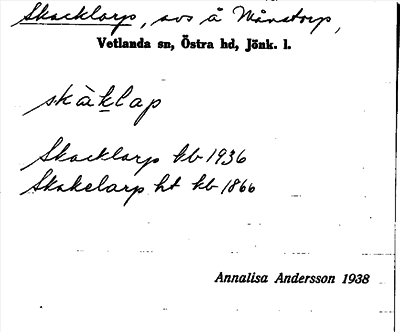 Skacklarp, avs å Månstorp,
Vetlanda sn, Östra hd, Jönk. l.
skàklap
Skacklarp kb 1936
Skakelarp ht kb 1866
Annalisa Andersson 1938